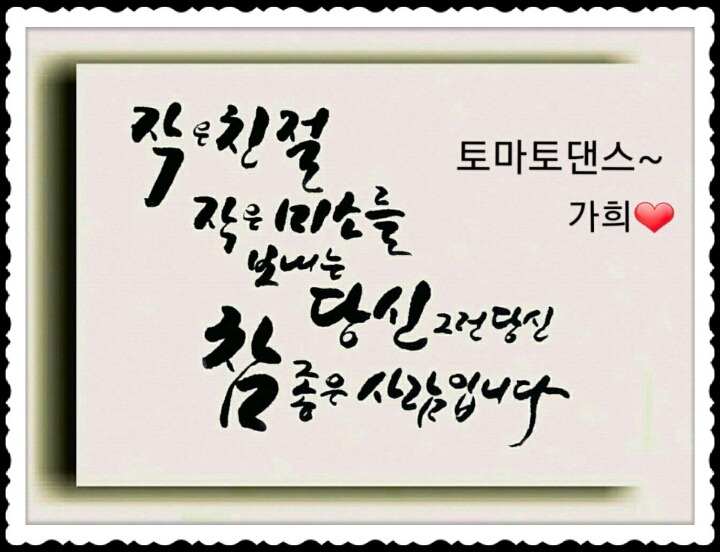 작은친절
작은 미소를
보내는
당신 그런당신
참 좋은 사람입니다
토마토댄스~
가희❤